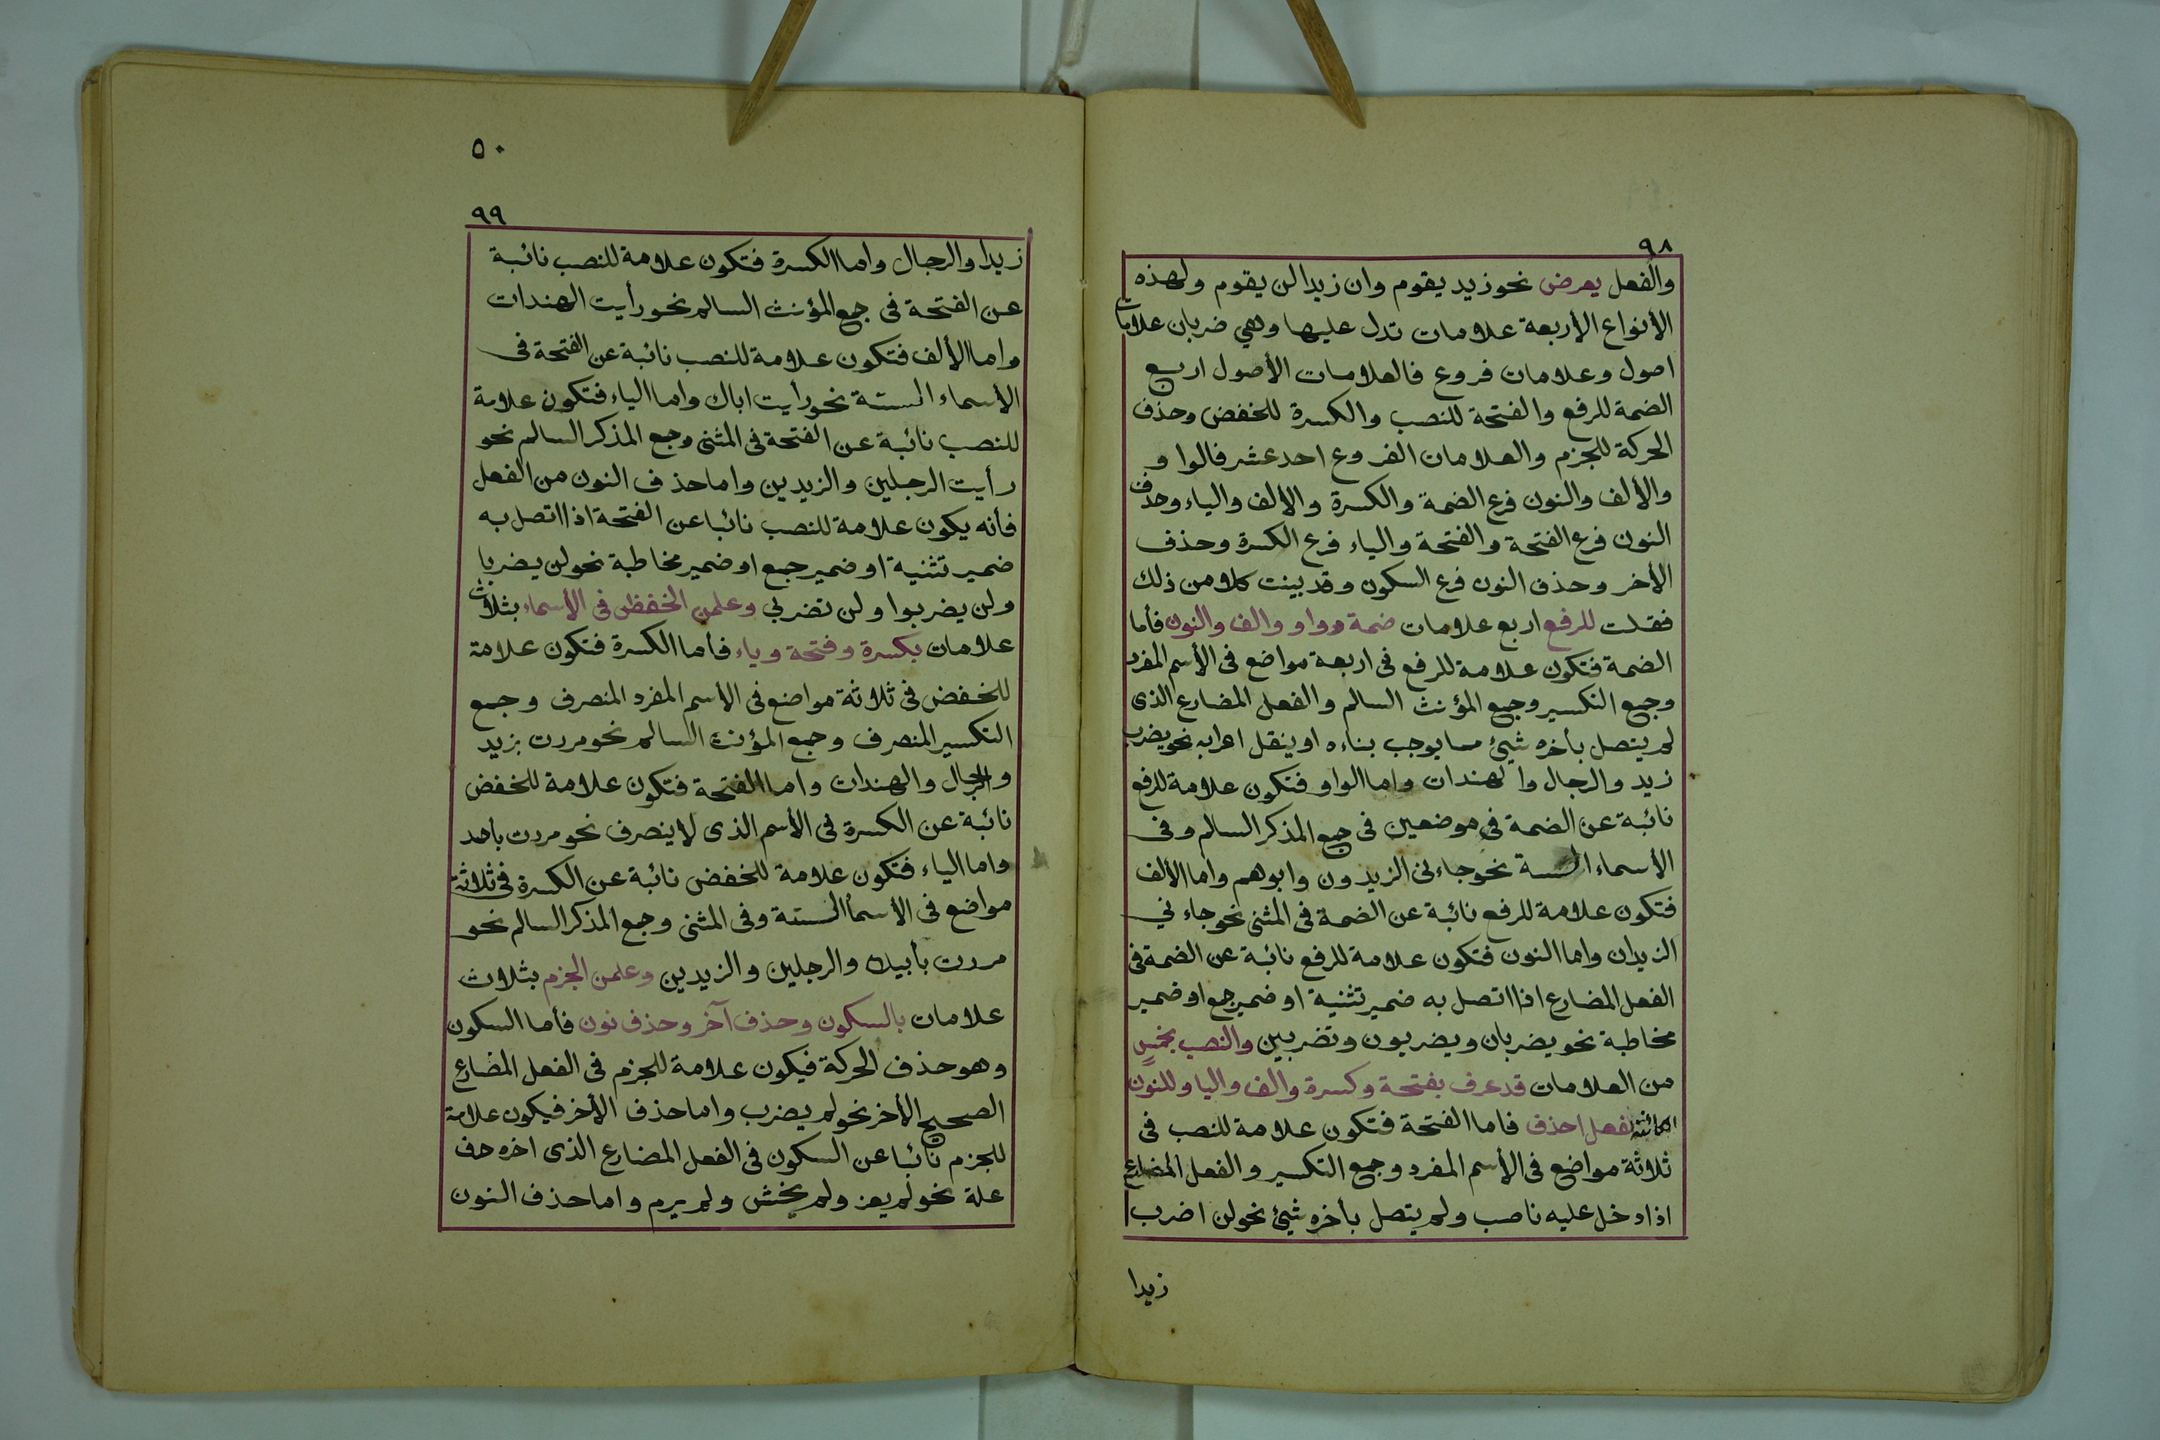 ٩٨
والفعل يعرض نحو زيد يقوم وان زيدا لن يقوم ولهذه
الأنواع الأربعة علامات تدل عليها وهي ضربان علامات
اصول وعلامات فروع فالعلامات الأصول اربع
الضمة للرفع والفتحة للنصب والكسرة للخفض وحذف
الحركة للجزم والعلامات الفروع احد عشر فالوا و
والألف والنون فرع الضمة والكسرة والالف والياء وحذف
النون فرع الفتحة والفتحة والياء فرع الكسرة وحذف
الأخر وحذف النون فرع السكون وقد بينت كلا من ذلك
فقلت للرفع اربع علامات ضمة وواو والف والنون فأما
الضمة فتكون علامة للرفع في اربعة مواضع في الأسم المفرد
وجمع التكسير وجمع المؤنث السالم والفعل المضارع الذى
لم يتصل بأخره شيئ مما يوجب بناءه او ينقل اعرابه نحو يضرب
زيد والرجال والهندات واما الواو فتكون علامة للرفع
نائبة عن الضمة في موضعين في جمع المذكر السالم وفى
الأسماء الستة نحو جاءنى الزيدون وابوهم واما الألف
فتكون علامة للرفع نائبة عن الضمة فى المثنى نحو جاءني
الزيدان واما النون فتكون علامة للرفع نائبة عن الضمة فى
الفعل المضارع اذا اتصل به ضمير تثنية او ضمير جمع او ضمير
مخاطبة نحو يضربان ويضربون وتضربين والنصب بخمس
من العلامات قد عرف بفتحة وكسرة والف واليا وللنون
الكائنة لفعل احذف فاما الفتحة فتكون علامة للنصب فى
ثلاثة مواضع فى الأسم المفرد وجمع التكسير والفعل المضارع
اذا دخل عليه ناصب ولم يتصل بأخره شيئ نحو لن اضرب
زيدا
٥٠
٩٩
زيدا والرجال واما الكسرة فتكون علامة للنصب نائبة
عن الفتحة فى جمع المؤنث السالم نحو رأيت الهندات
واما الألف فتكون علامة للنصب نائبة عن الفتحة فى
الأسماء الستة نحو رأيت اباك واما الياء فتكون علامة
للنصب نائبة عن الفتحة فى المثنى وجمع المذكر السالم نحو
رأيت الرجلين والزيدين واما حذف النون من الفعل
فأنه يكون علامة للنصب نائبا عن الفتحة اذا اتصل به
ضمير تثنية او ضمير جمع او ضمير مخاطبة نحو لن يضربا
ولن يضربوا ولن تضربي وعلمن الخفظ فى الأسماء بثلاث
علامات بكسرة وفتحة وياء فأما الكسرة فتكون علامة
للخفض فى ثلاثة مواضع فى الأسم المفرد المنصرف وجمع
التكسير المنصرف وجمع المؤنث السالم نحو مررت بزيد
والرجال والهندات واما الفتحة فتكون علامة للخفض
نائبة عن الكسرة فى الأسم الذى لا ينصرف نحو مررت بأحمد
واما الياء فتكون علامة للخفض نائبة عن الكسرة فى ثلاثة
مواضع فى الأسمأ الستة وفى المثنى وجمع المذكر السالم نحو
مررت بأبيك والرجلين والزيدين وعلمن الجزم بثلاث
علامات بالسكون وحذف آخر وحذف نون فأما السكون
وهو حذف الحركة فيكون علامة للجزم فى الفعل المضارع
الصحيح الأخر نحو لم يضرب واما حذف الأخر فيكون علامة
للجزم نائبا عن السكون فى الفعل المضارع الذى اخره حرف
علة نحو لم يعز ولم يخش ولم يرم واما حذف النون